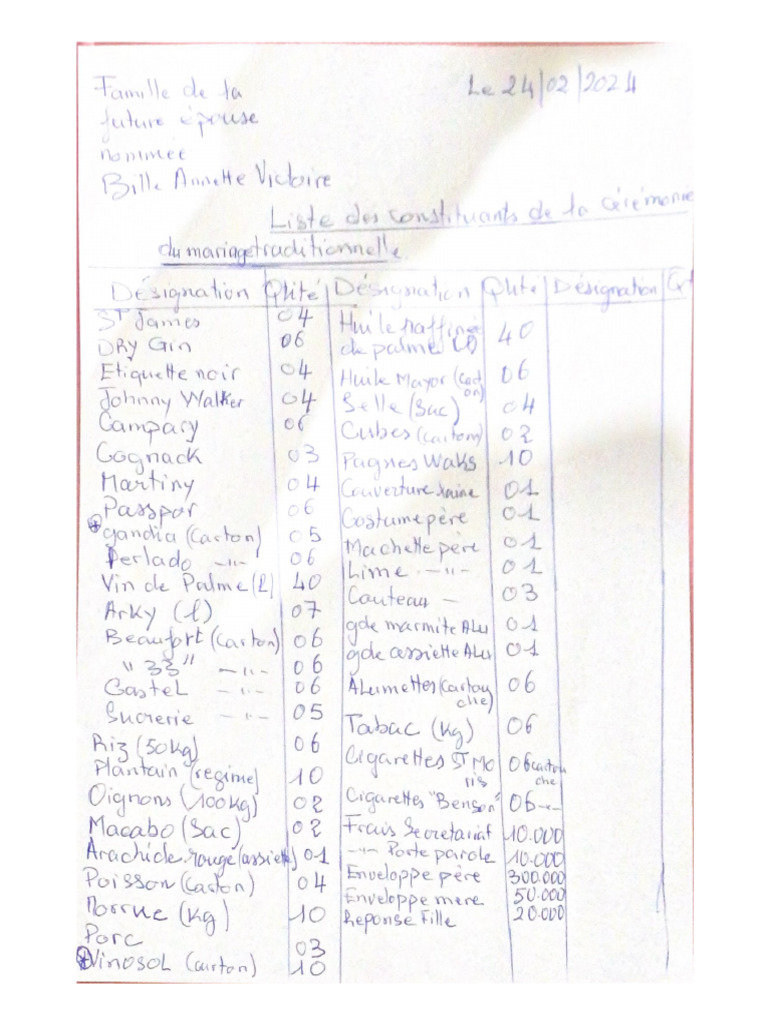 Famille de la
future épouse
nommée
Bille Annette Victoire
Le 24/02/2024
Liste des constituants de la cérémonie
du mariage traditionnelle.
Désignation Qtité Désignation Qtité Désignation Qt
St James 04
DRY Gin 06
Etiquette noir 04
Johnny Walker 04
Campary 06
Cognack 03
Martiny 04
Passpor 06
gandia (Carton) 05
Perlado -"- 06
Vin de Palme (l) 40
Arky (l) 07
Beaufort (Carton) 06
"33" -"- 06
Castel -"- 06
Sucrerie -"- 05
Riz (50kg) 06
Plantain (regime) 10
Oignons (100kg) 02
Macabo (Sac) 02
Arachide rouge (assiette) 01
Poisson (Carton) 04
Morrue (kg) 10
Porc 03
Vinosol (carton) 10
Huile raffinée
de palme (l) 40
Huile Mayor (Cart
on) 06
Selle (Sac) 04
Cubes (carton) 02
Pagnes Waks 10
Couverture laine 01
Costume père 01
Machette père 01
Lime -"- 01
Couteau - 03
gde marmite Alu 01
gde assiette Alu 01
Alumettes (Cartou
che) 06
Tabac (kg) 06
Cigarettes ST Mo
ris 06 cartou
che
Cigarettes "Benson" 06 -"-
Frais Secretariat 10.000
-"- Porte parole 10.000
Enveloppe père 300.000
Enveloppe mere 50.000
Reponse Fille 20.000